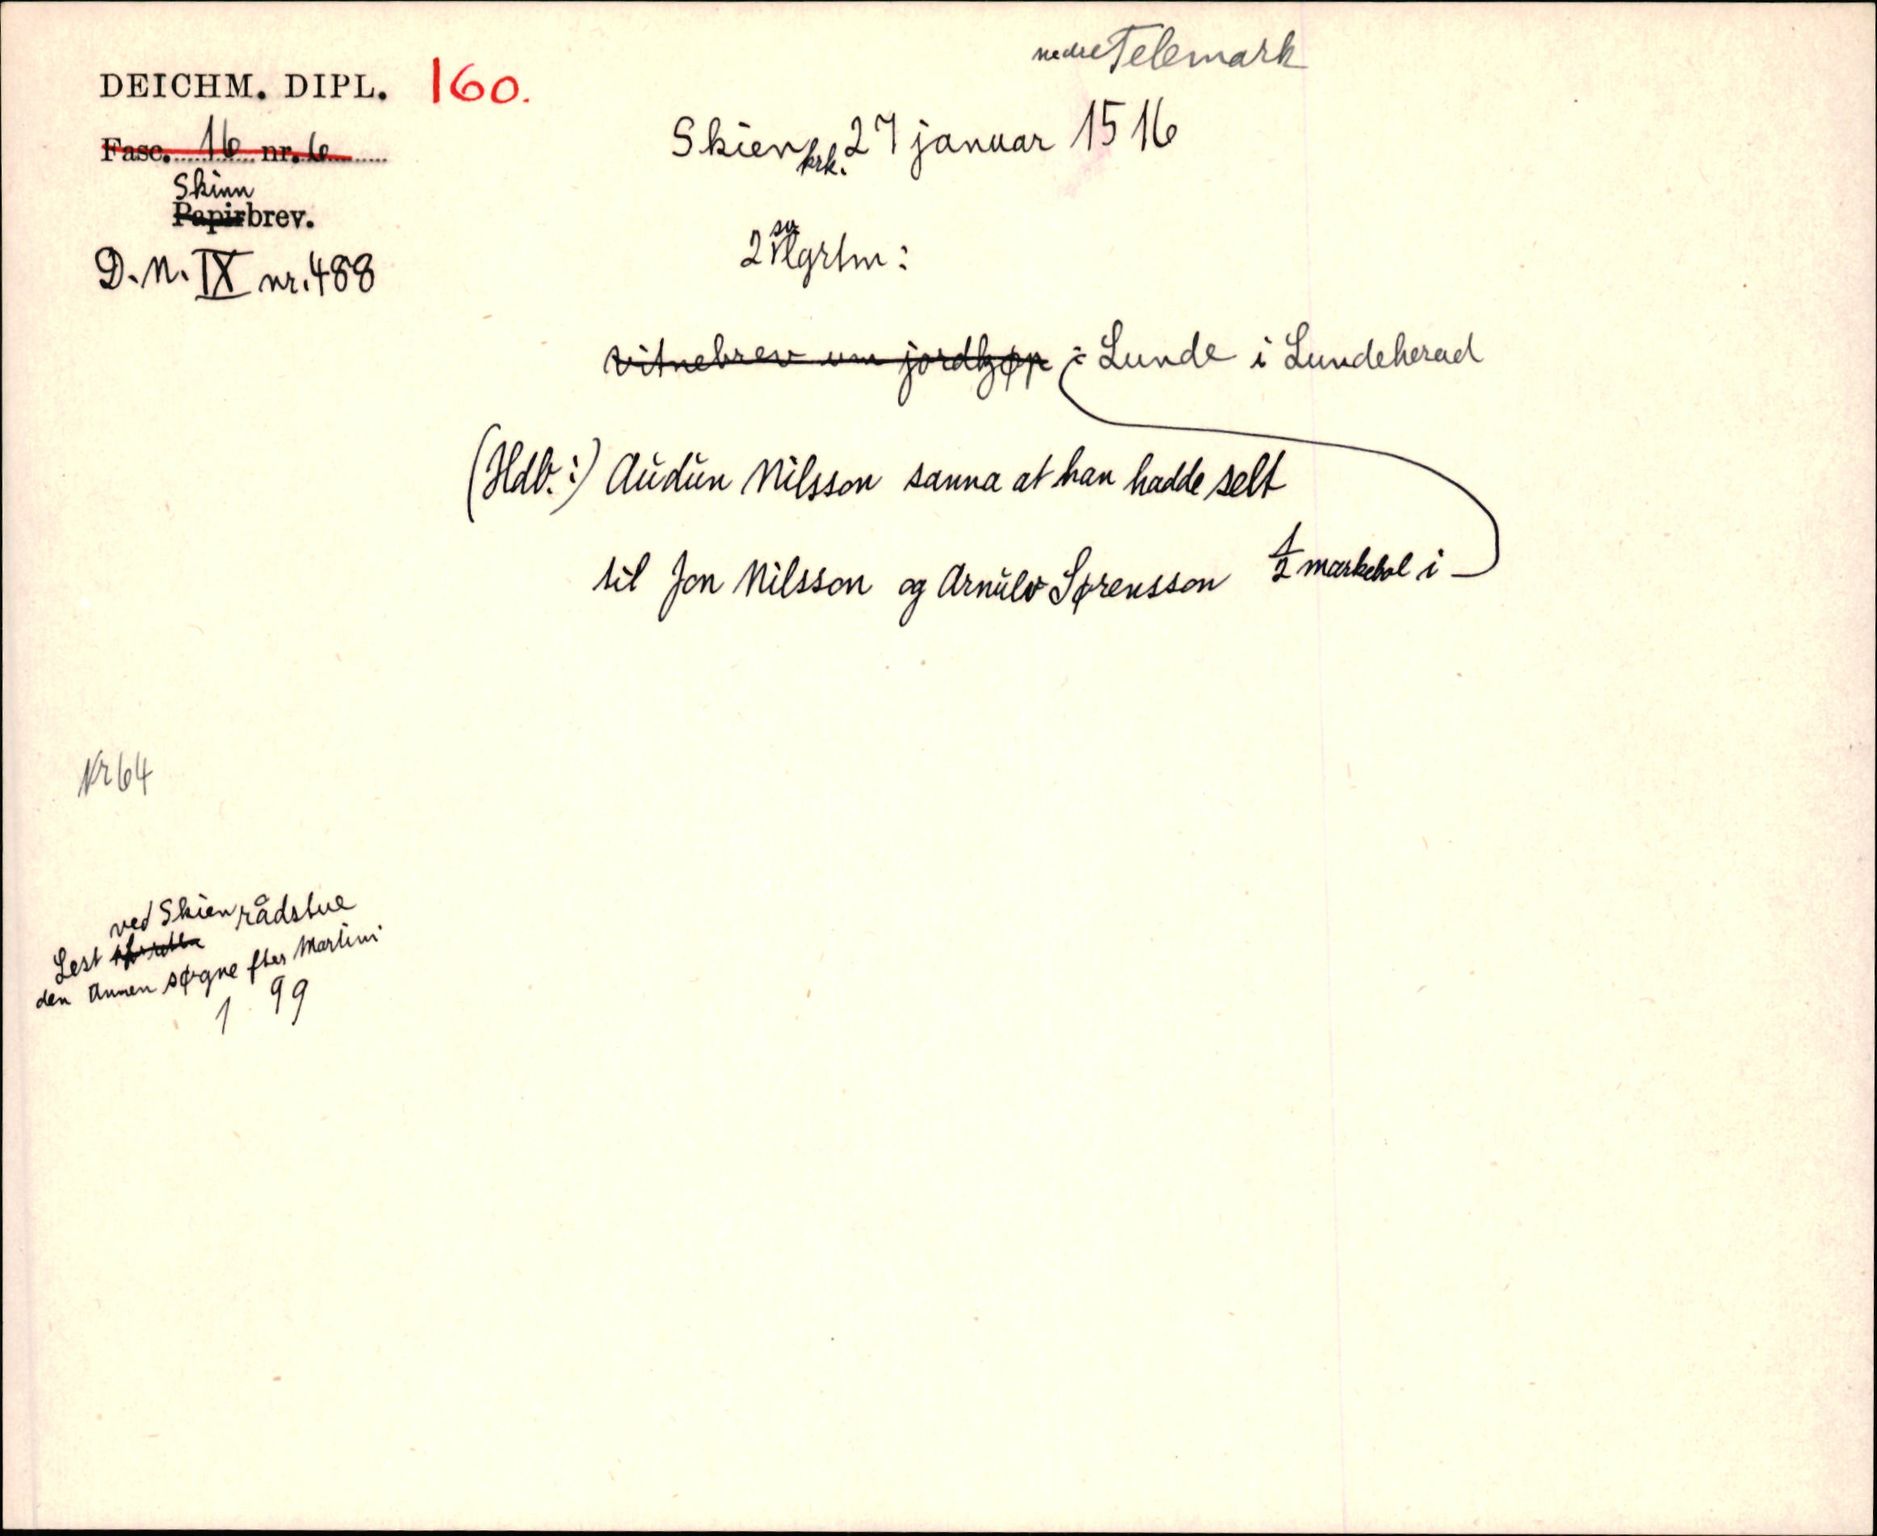 nedre Telemark
DEICHM. DIPL. 160.
Skien krk. 27 januar 1516
Fasc. 16 nr. 6
Skinn
Papirbrev.
D. N. IX nr. 488
2 lgrtm:
vitnebrev um jordkjøp i Lunde i Lundeherad
(Hdl.:) Audun Nilsson sanna at han hadde selt
til Jon Nilsson og Arnulv Sørensson 1/2 markebol i
Nr 64
ved Skien rådstue
Lest
den annen søgne fter Martini
1 99